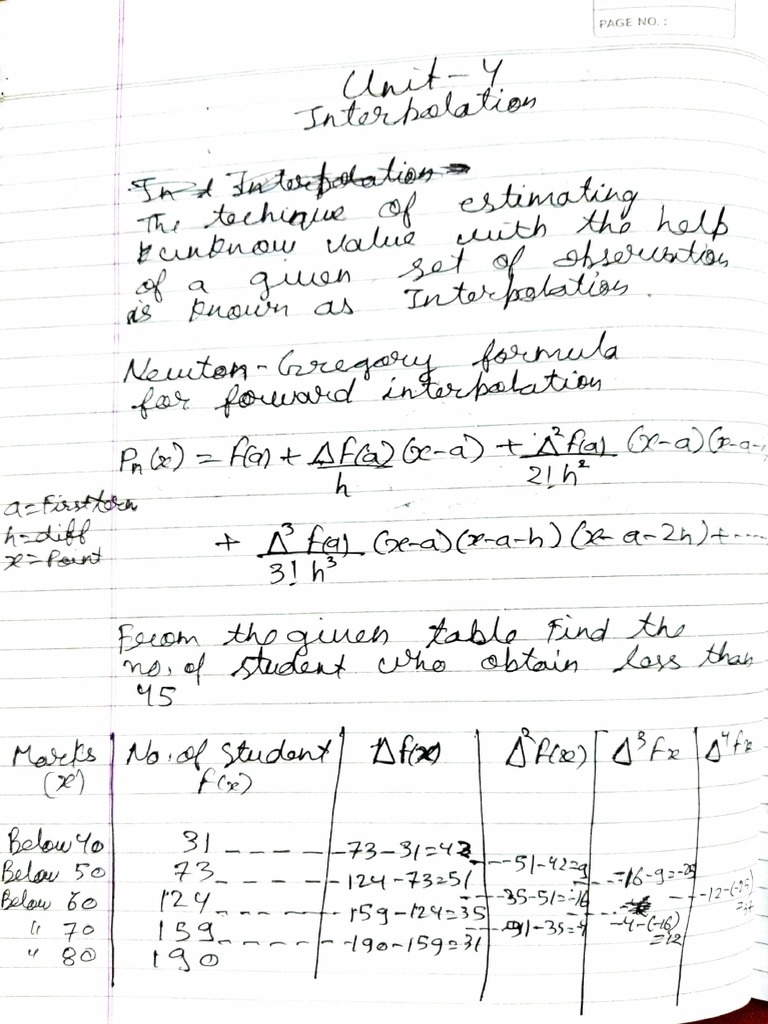 PAGE NO. :
Unit-4
Interpolation
The techique of estimating
unknow value with the help
of a given set of obseruation
is known as Interpolation.
Newton-Gregory formula
for forward interpolation
Pn(x) = f(a) + Δf(a)/h (x-a) + Δ²f(a)/2!h² (x-a)(x-a-
a=First term
h=diff
x=Point
+ Δ³f(a)/3!h³ (x-a)(x-a-h)(x-a-2h)+.....
From the given table Find the
no. of student who obtain less than
45
Marks (x) No. of student f(x) Δf(x) Δ²f(x) Δ³fx Δ⁴fx
Below 40 31 73-31=42
Below 50 73 124-73=51 51-42=9 -16-9=-25
Below 60 124 159-124=35 35-51=-16 -12-(-25)
" 70 159 190-159=31 31-35=-4 -4-(-16) =12
" 80 190